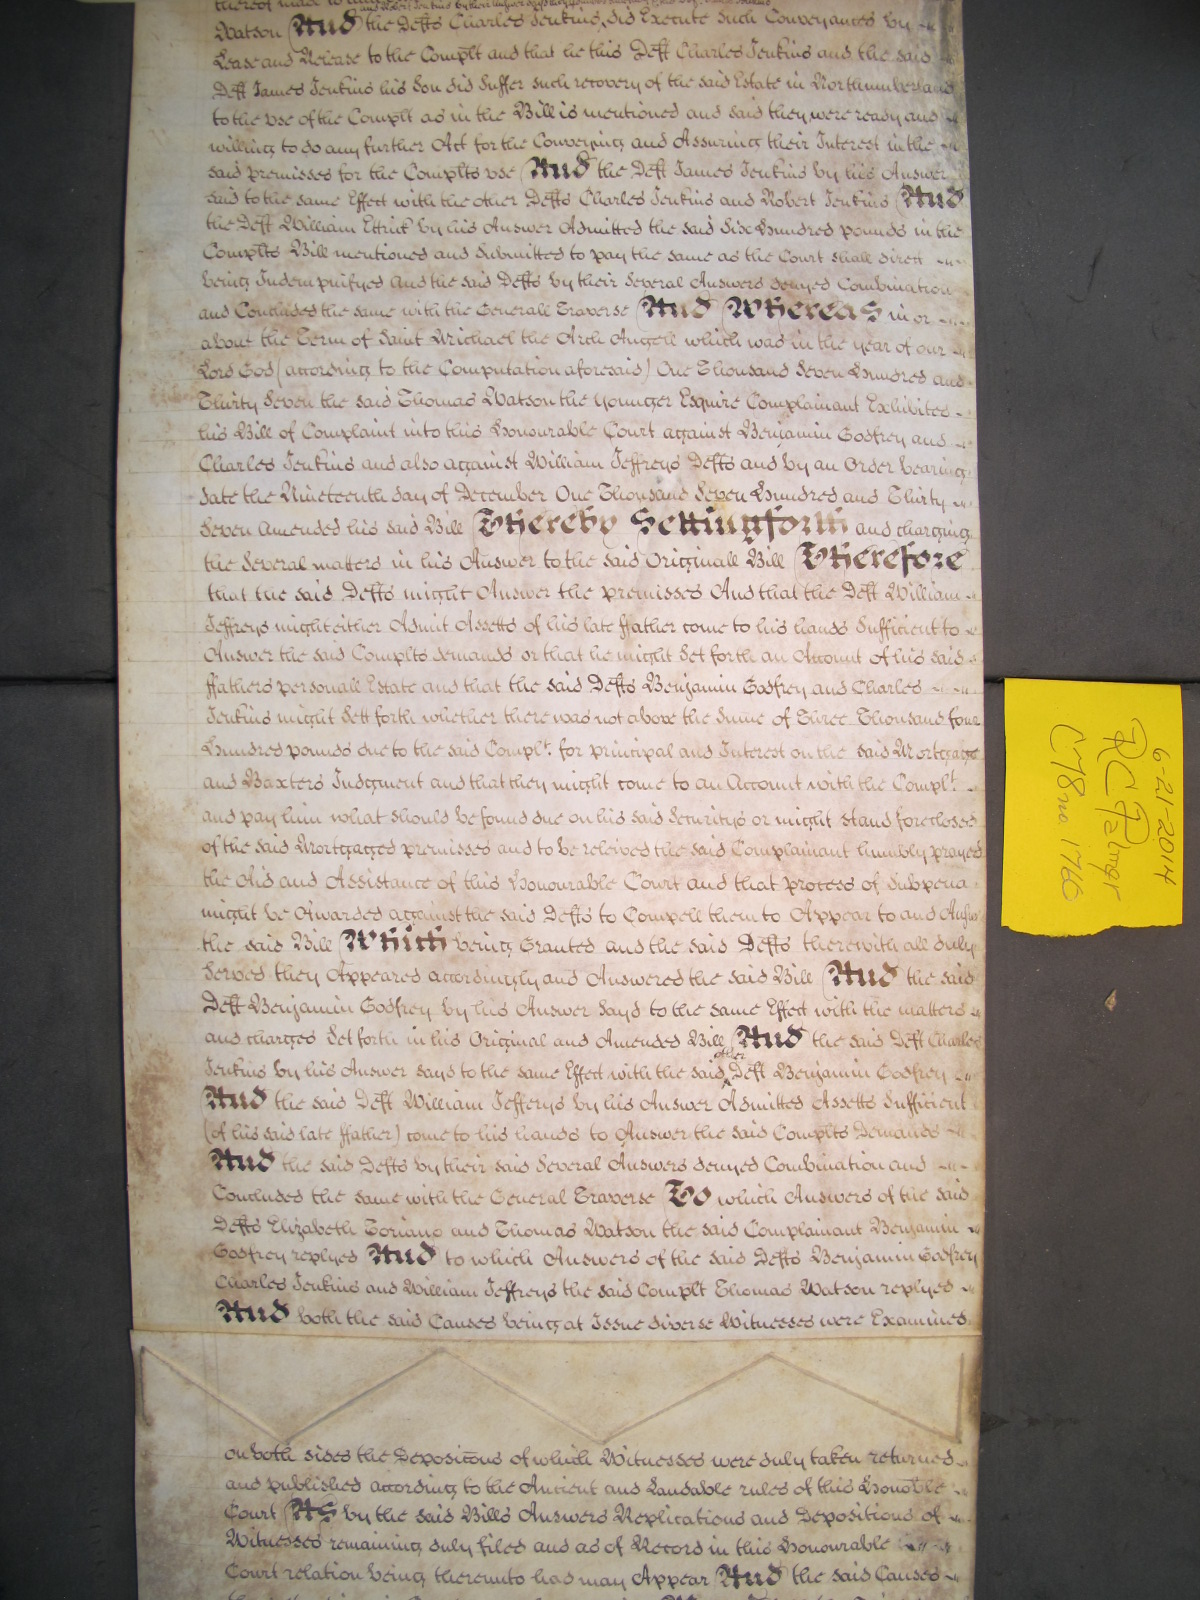 Watson And the Defts Charles Jenkins did Execute such Conveyances by
Lease and Release to the Complt and that he this Deft Charles Jenkins and the said
Deft James Jenkins his Son did Suffer such recovery of the said Estate in Northumberland
to the use of the Complt as in the Bill is mentioned and said they were ready and
willing to do any further Act for the Conveying and Assuring their Interest in the
said premisses for the Complts use And the Deft James Jenkins by his Answer
said to the same Effect with the other Defts Charles Jenkins and Robert Jenkins And
the Deft William Ettrick by his Answer Admitted the said Six hundred pounds in the
Complts Bill mentioned and Submitted to pay the same as the Court shall direct
being Indempnifyed And the said Defts by their Several Answers denyed Combination
and Concluded the same with the Generall Traverse And Whereas in or
about the Term of Saint Michael the Arch Angell which was in the year of our
Lord God (according to the Computation aforesaid) One Thousand Seven hundred and
Thirty Seven the said Thomas Watson the younger Esquire Complainant Exhibited
his Bill of Complaint into this Honourable Court against Benjamin Godfrey and
Charles Jenkins and also against William Jeffreys Defts and by an Order bearing
date the Nineteenth day of December One Thousand Seven hundred and Thirty
Seven Amended his said Bill Thereby Settingforth and charging
the Several matters in his Answer to the said Originall Bill Therefore
that the said Defts might Answer the premisses And that the Deft William
Jeffreys might either Admit Assetts of his late ffather come to his hands Sufficient to
Answer the said Complts demands or that he might Set forth an Account of his said
ffathers personall Estate and that the said Defts Benjamin Godfrey and Charles
Jenkins might Sett forth whether there was not above the Sume of Three Thousand four
hundred pounds due to the said Complt. for principal and Interest on the said Mortgage
and Baxters Judgment and that they might come to an Account with the Complt
and pay him what should be found due on his said Securitys or might stand foreclosed
of the said Mortgaged premisses and to be releived the said Complainant humbly prayed
the Aid and Assistance of this Honourable Court and that process of Subpena
might be Awarded against the said Defts to Compell them to Appear to and Answ
the said Bill Which being Granted and the said Defts therewith all duly
Served they Appeared accordingly and Answered the said Bill And the said
Deft Benjamin Godfrey by his Answer says to the same Effect with the matters
and charges Set forth in his Original and Amended Bill And the said Deft Charles
Jenkins by his Answer says to the same Effect with the said other Deft Benjamin Godfrey
And the said Deft William Jefferys by his Answer Admitted Assetts Sufficient
(of his said late ffather) come to his hands to Answer the said Complts Demands
And the said Defts by their said Several Answers denyed Combination and
Concluded the same with the General Traverse To which Answers of the said
Defts Elizabeth Toriano and Thomas Watson the said Complainant Benjamin
Godfrey replyed And to which Answers of the said Defts Benjamin Godfrey
Charles Jenkins and William Jeffreys the said Complt Thomas Watson replyed
And both the said Causes being at Issue diverse Witnesses were Examined
on both sides the Depositons of which Witnesses were duly taken returned
and published according to the Antient and Laudable rules of this Honoble
Court As by the said Bills Answers Replications and Depositions of
Witnesses remaining duly filed and as of Record in this Honourable
Court relation being thereunto had may Appear And the said Causes
6-21-2014
RC Palmer
C78 no 1766